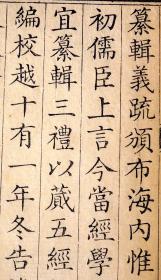 纂輯義疏頒布海內惟
初儒臣上言今當經學
宜纂輯三禮以蕆五經
編校越十有一年冬告